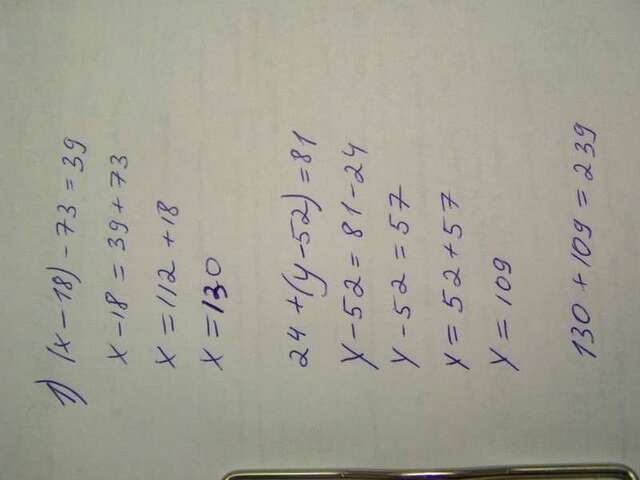 1) (x-18)-73=39
x-18=39+73
x=112+18
x=130
24+(y-52)=81
y-52=81-24
y-52=57
y=52+57
y=109
130+109=239